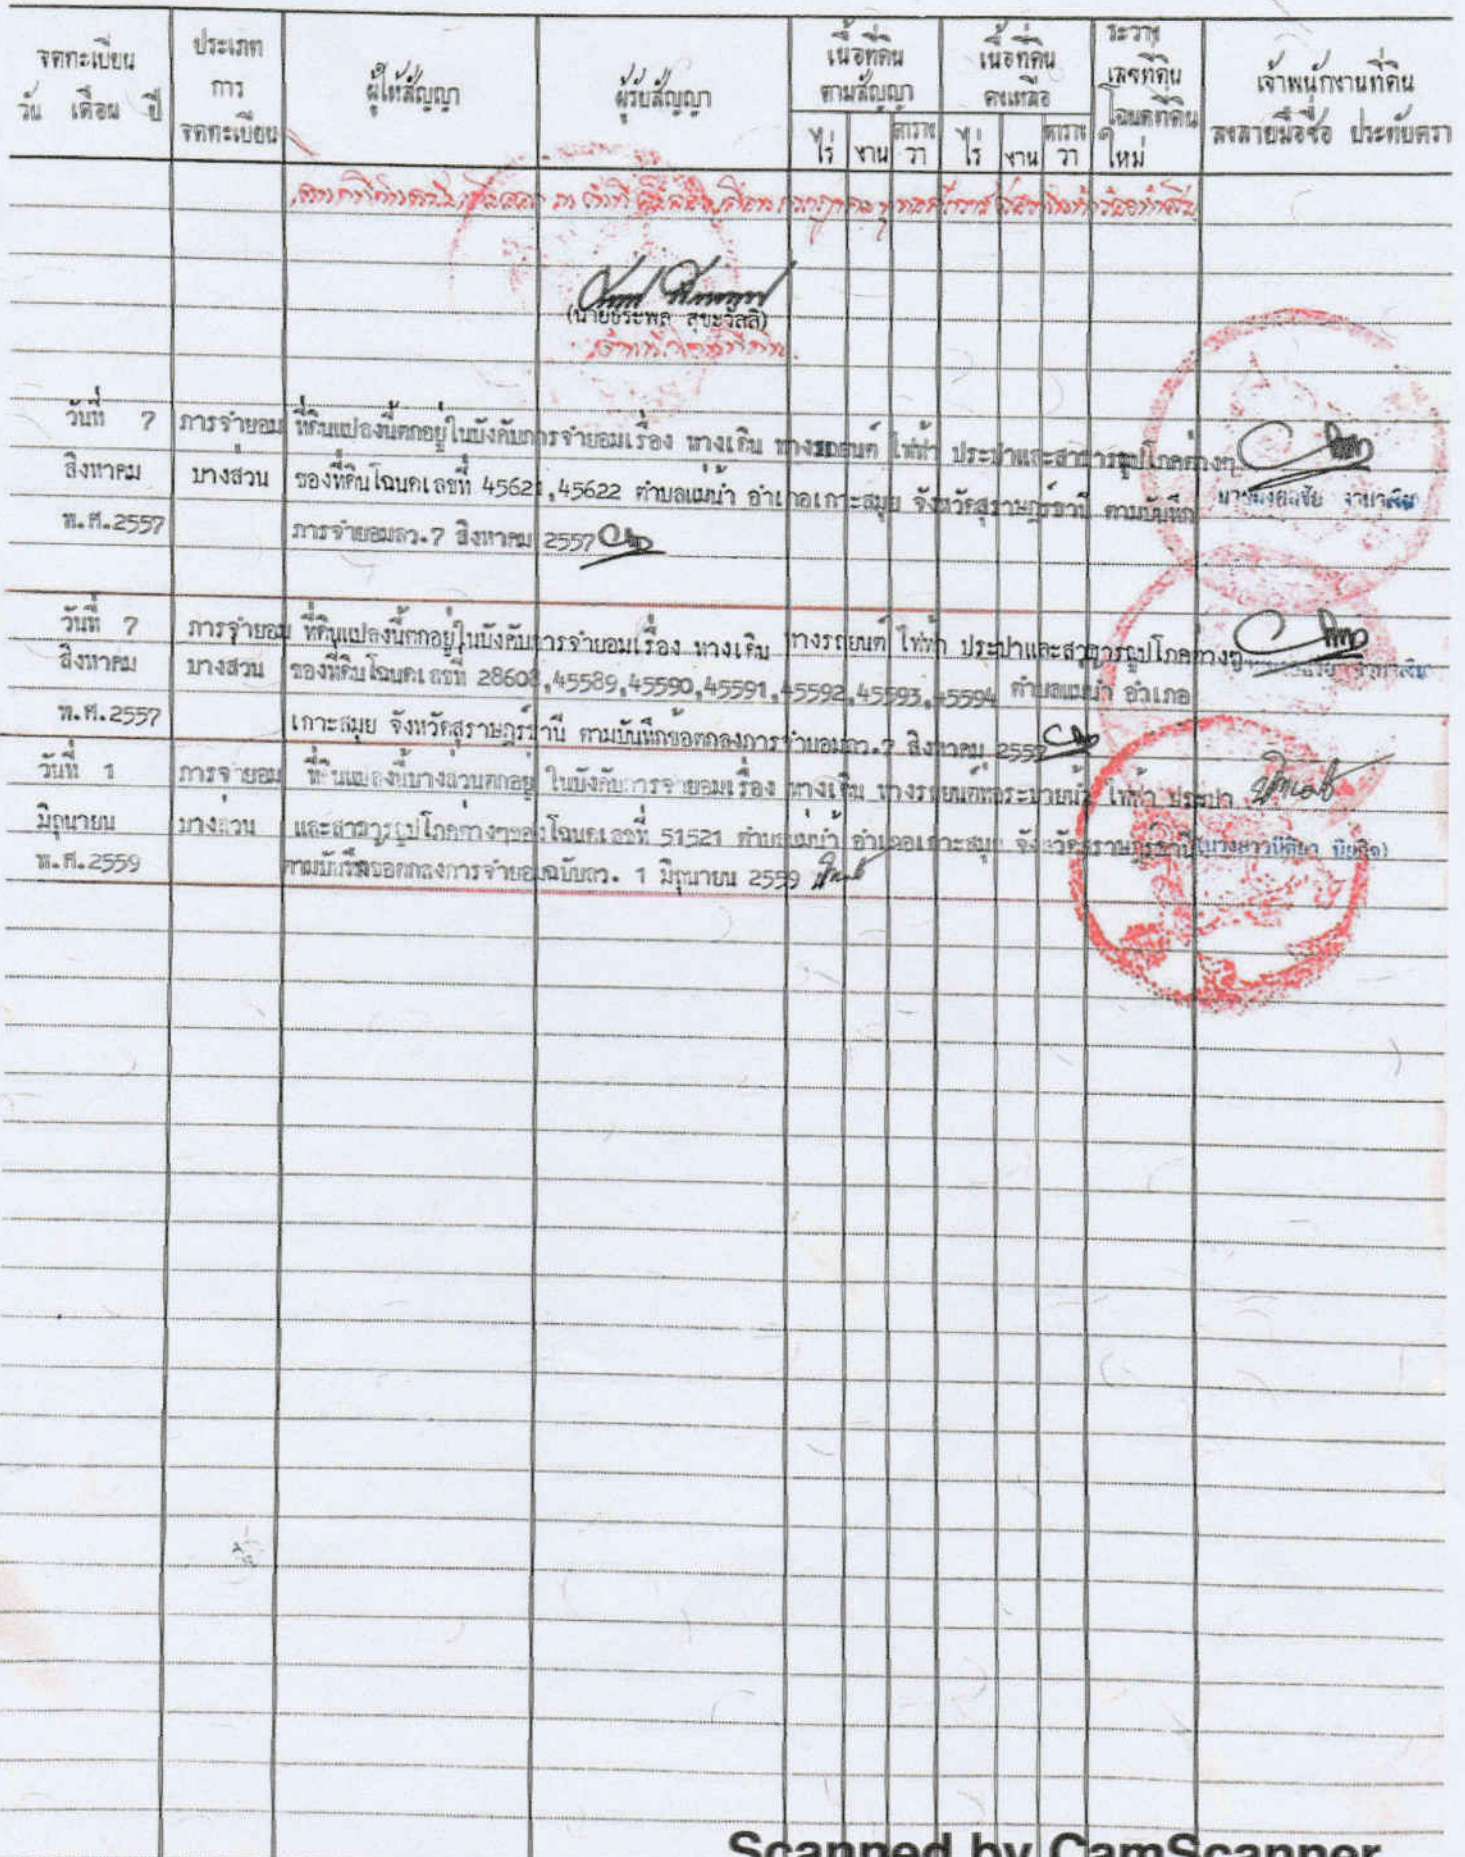 จดทะเบียน
วัน เดือน ปี
ประเภท
การ
จดทะเบียน
ผู้ให้สัญญา
ผู้รับสัญญา
เนื้อที่ดิน
ตามสัญญา
ไร่ งาน ตาราง
วา
เนื้อที่ดิน
คงเหลือ
ไร่ งาน ตาราง
วา
ระวาง
เลขที่ดิน
โฉนดที่ดิน
ใหม่
เจ้าพนักงานที่ดิน
ลงลายมือชื่อ ประทับตรา
(นายธีระพล สุขะวัลลิ)
วันที่ 7 การจำยอม ที่ดินแปลงนี้ตกอยู่ในบังคับภารจำยอมเรื่อง ทางเดิน ทางรถยนต์ ไฟฟ้า ประปาและสาธารณูปโภคต่างๆ
สิงหาคม บางส่วน ของที่ดินโฉนดเลขที่ 45621,45622 ตำบลแม่น้ำ อำเภอเกาะสมุย จังหวัดสุราษฎร์ธานี ตามบันทึก
พ.ศ.2557 ภารจำยอมลว.7 สิงหาคม 2557
วันที่ 7 ภารจำยอม ที่ดินแปลงนี้ตกอยู่ในบังคับภารจำยอมเรื่อง ทางเดิน ทางรถยนต์ ไฟฟ้า ประปาและสาธารณูปโภคต่างๆ
สิงหาคม บางส่วน ของที่ดินโฉนดเลขที่ 28608,45589,45590,45591,45592,45593,45594 ตำบลแม่น้ำ อำเภอ
พ.ศ.2557 เกาะสมุย จังหวัดสุราษฎร์ธานี ตามบันทึกข้อตกลงภารจำยอมลว.7 สิงหาคม 2557
วันที่ 1 ภารจำยอม ที่ดินแปลงนี้บางส่วนตกอยู่ ในบังคับภารจำยอมเรื่อง ทางเดิน ทางรถยนต์ท่อระบายน้ำ ไฟฟ้า ประปา
มิถุนายน บางส่วน และสาธารณูปโภคต่างๆของโฉนดเลขที่ 51521 ตำบลแม่น้ำ อำเภอเกาะสมุย จังหวัดสุราษฎร์ธานี
พ.ศ.2559 ตามบันทึกข้อตกลงภารจำยอมฉบับลว. 1 มิถุนายน 2559
Scanned by CamScanner